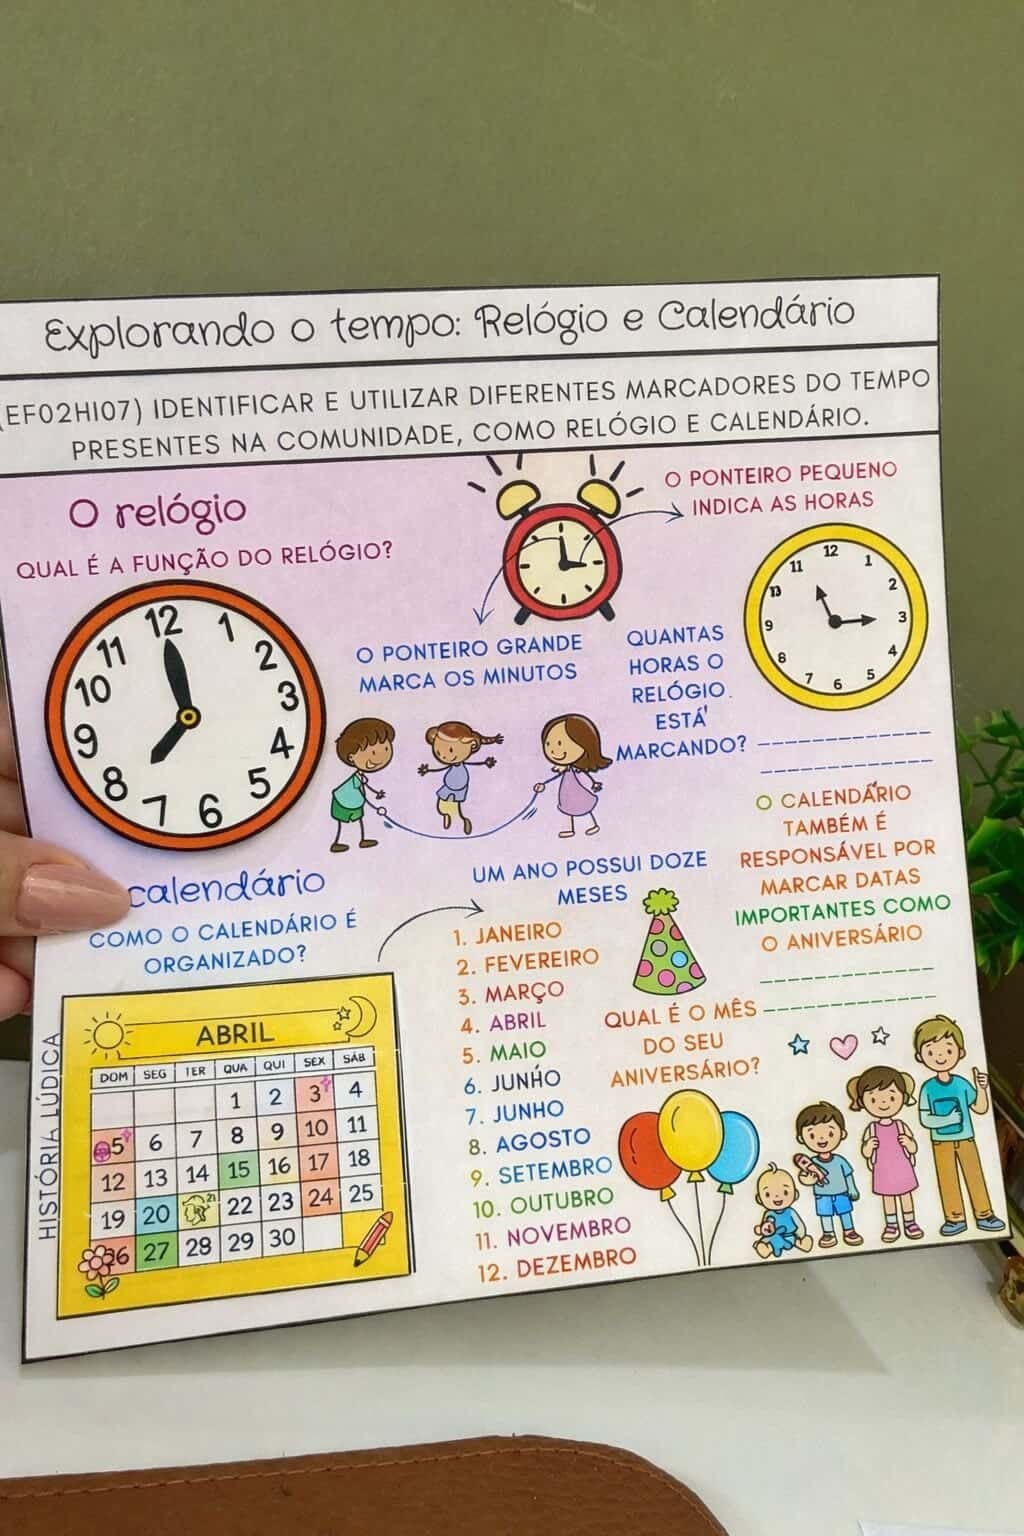 Explorando o tempo: Relógio e Calendário
(EF02HI07) IDENTIFICAR E UTILIZAR DIFERENTES MARCADORES DO TEMPO
PRESENTES NA COMUNIDADE, COMO RELÓGIO E CALENDÁRIO.
O relógio
QUAL É A FUNÇÃO DO RELÓGIO?
12
1
2
3
4
5
6
7
8
9
10
11
O PONTEIRO GRANDE
MARCA OS MINUTOS
O PONTEIRO PEQUENO
INDICA AS HORAS
12
1
2
3
4
5
6
7
8
9
11
QUANTAS
HORAS O
RELÓGIO.
ESTÁ
MARCANDO?
calendário
COMO O CALENDÁRIO É
ORGANIZADO?
HISTÓRIA LÚDICA
ABRIL
DOM SEG TER QUA QUI SEX SÁB
1 2 3 4
5 6 7 8 9 10 11
12 13 14 15 16 17 18
19 20 21 22 23 24 25
26 27 28 29 30
UM ANO POSSUI DOZE
MESES
1. JANEIRO
2. FEVEREIRO
3. MARÇO
4. ABRIL
5. MAIO
6. JUNHO
7. JUNHO
8. AGOSTO
9. SETEMBRO
10. OUTUBRO
11. NOVEMBRO
12. DEZEMBRO
O CALENDÁRIO
TAMBÉM É
RESPONSÁVEL POR
MARCAR DATAS
IMPORTANTES COMO
O ANIVERSÁRIO
QUAL É O MÊS
DO SEU
ANIVERSÁRIO?